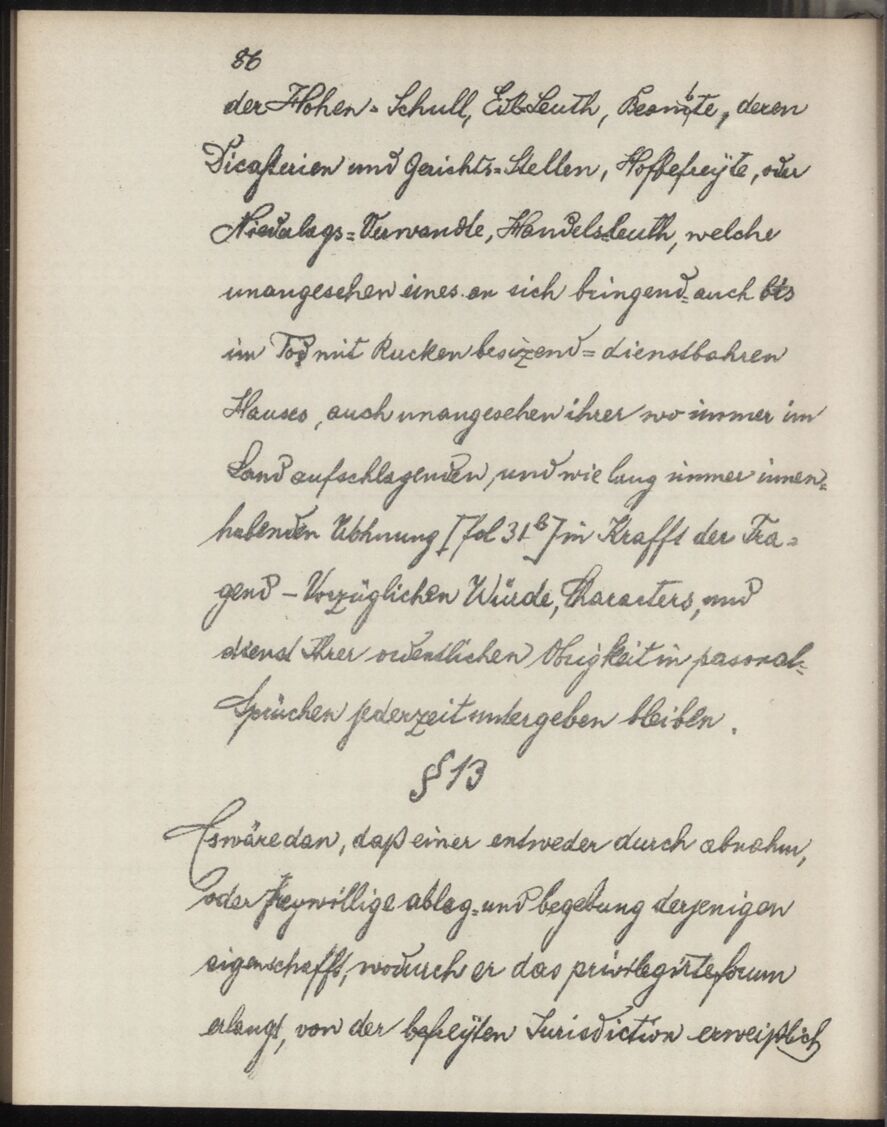 86
der Hohen = Schull, Edl Leuth, Beambte, deren
Dicasterien und Gerichts = Stellen, Hofbefreÿte, oder
Niederlags = Verwandte, Handelsleuth, welche
unangesehen eines an sich bringend = auch bis
im Tod mit Rucken besizend = dienstbahren
Hauses, auch unangesehen ihrer wo immer im
Land aufschlagenden, und wie lang immer innen =
habenden Wohnung [fol 31b] in Krafft der Tra =
gend – Vorzüglichen Würde, Characters, und
dienst Ihrer ordentlichen Obrigkeit in pasonal =
Sprüchen jederzeit untergeben bleiben.
§ 13
Es wäre dan, daß einer entweder durch abnahm,
oder freywillige ablag = und begebung derjenigen
eigenschafft, wodurch er das privilegirte forum
erlangt, von der befreÿten Jurisdiction erweißlich